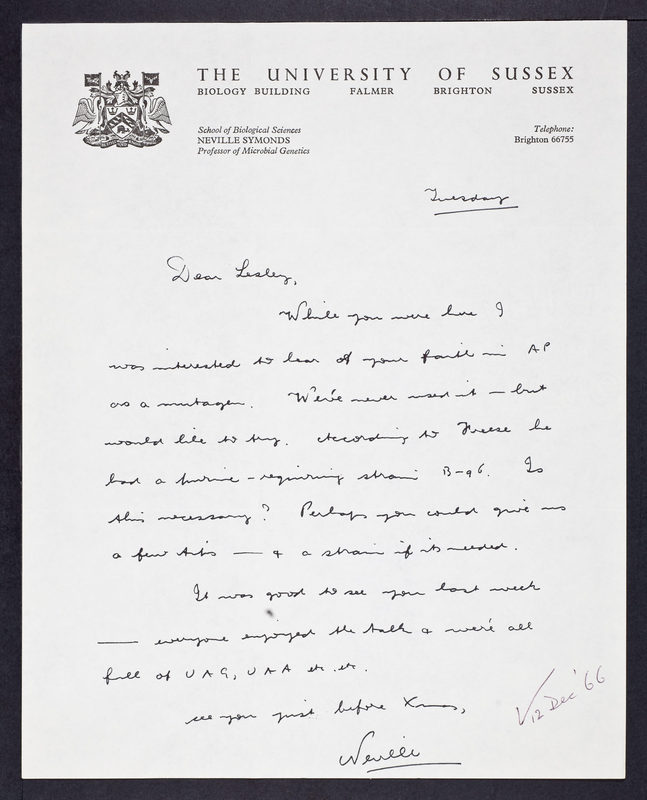 THE UNIVERSITY OF SUSSEX
BIOLOGY BUILDING FALMER BRIGHTON SUSSEX
School of Biological Sciences
NEVILLE SYMONDS
Professor of Microbial Genetics
Telephone:
Brighton 66755
Tuesday
Dear Lesley,
While you were here I
was interested to hear of your faith in AP
as a mutagen. We've never used it – but
would like to try. According to Freese he
had a purine-requiring strain B-96. Is
this necessary? Perhaps you could give us
a few tits — & a strain if its needed.
It was good to see you last week
— everyone enjoyed the talk & we're all
full of UAG, UAA etc. etc.
see you just before Xmas,
Neville
12 Dec '66